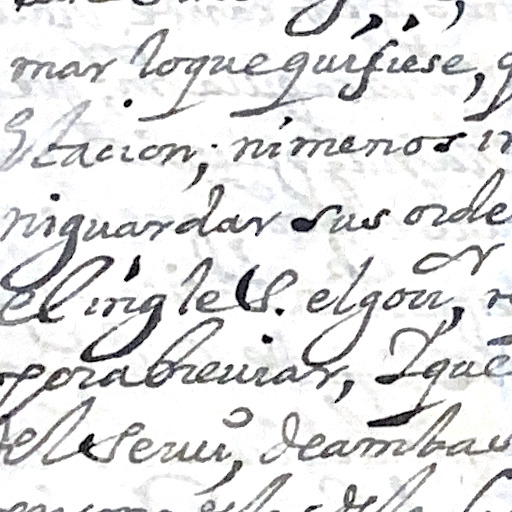 mar loque quisiese,
stacion; nimenos in
niguardar sus orde
el ingles. elgou.ᵒʳ,
por abreuiar, Y que
del seruº, de ambas